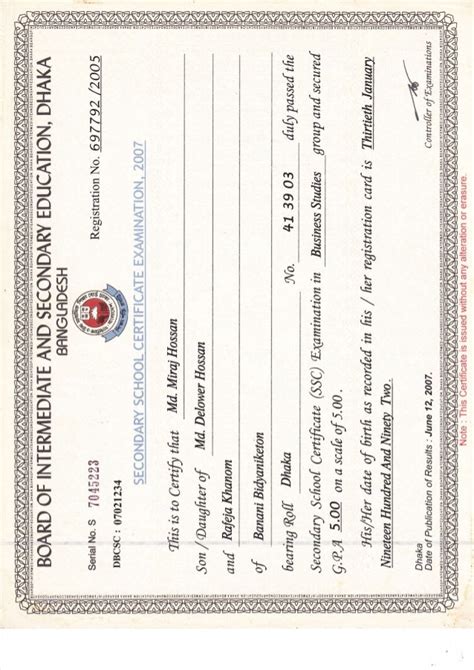 BOARD OF INTERMEDIATE AND SECONDARY EDUCATION, DHAKA
BANGLADESH
Serial No. S 7045223
Registration No. 697792 /2005
DBCSC : 07021234
SECONDARY SCHOOL CERTIFICATE EXAMINATION, 2007
This is to Certify that Md. Miraj Hossan
Son / Daughter of Md. Delower Hossan
and Rafeja Khanom
of Banani Bidyaniketon
bearing Roll Dhaka No. 41 39 03 duly passed the
Secondary School Certificate (SSC) Examination in Business Studies group and secured
G.P.A 5.00 on a scale of 5.00 .
His/Her date of birth as recorded in his / her registration card is Thirtieth January
Nineteen Hundred And Ninety Two.
Dhaka
Date of Publication of Results : June 12, 2007.
Controller of Examinations
Note : This Certificate is issued without any alteration or erasure.